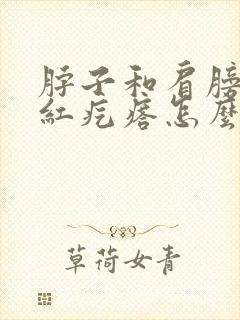 脖子和肩膀
紅疙瘩怎麼
草荷女青